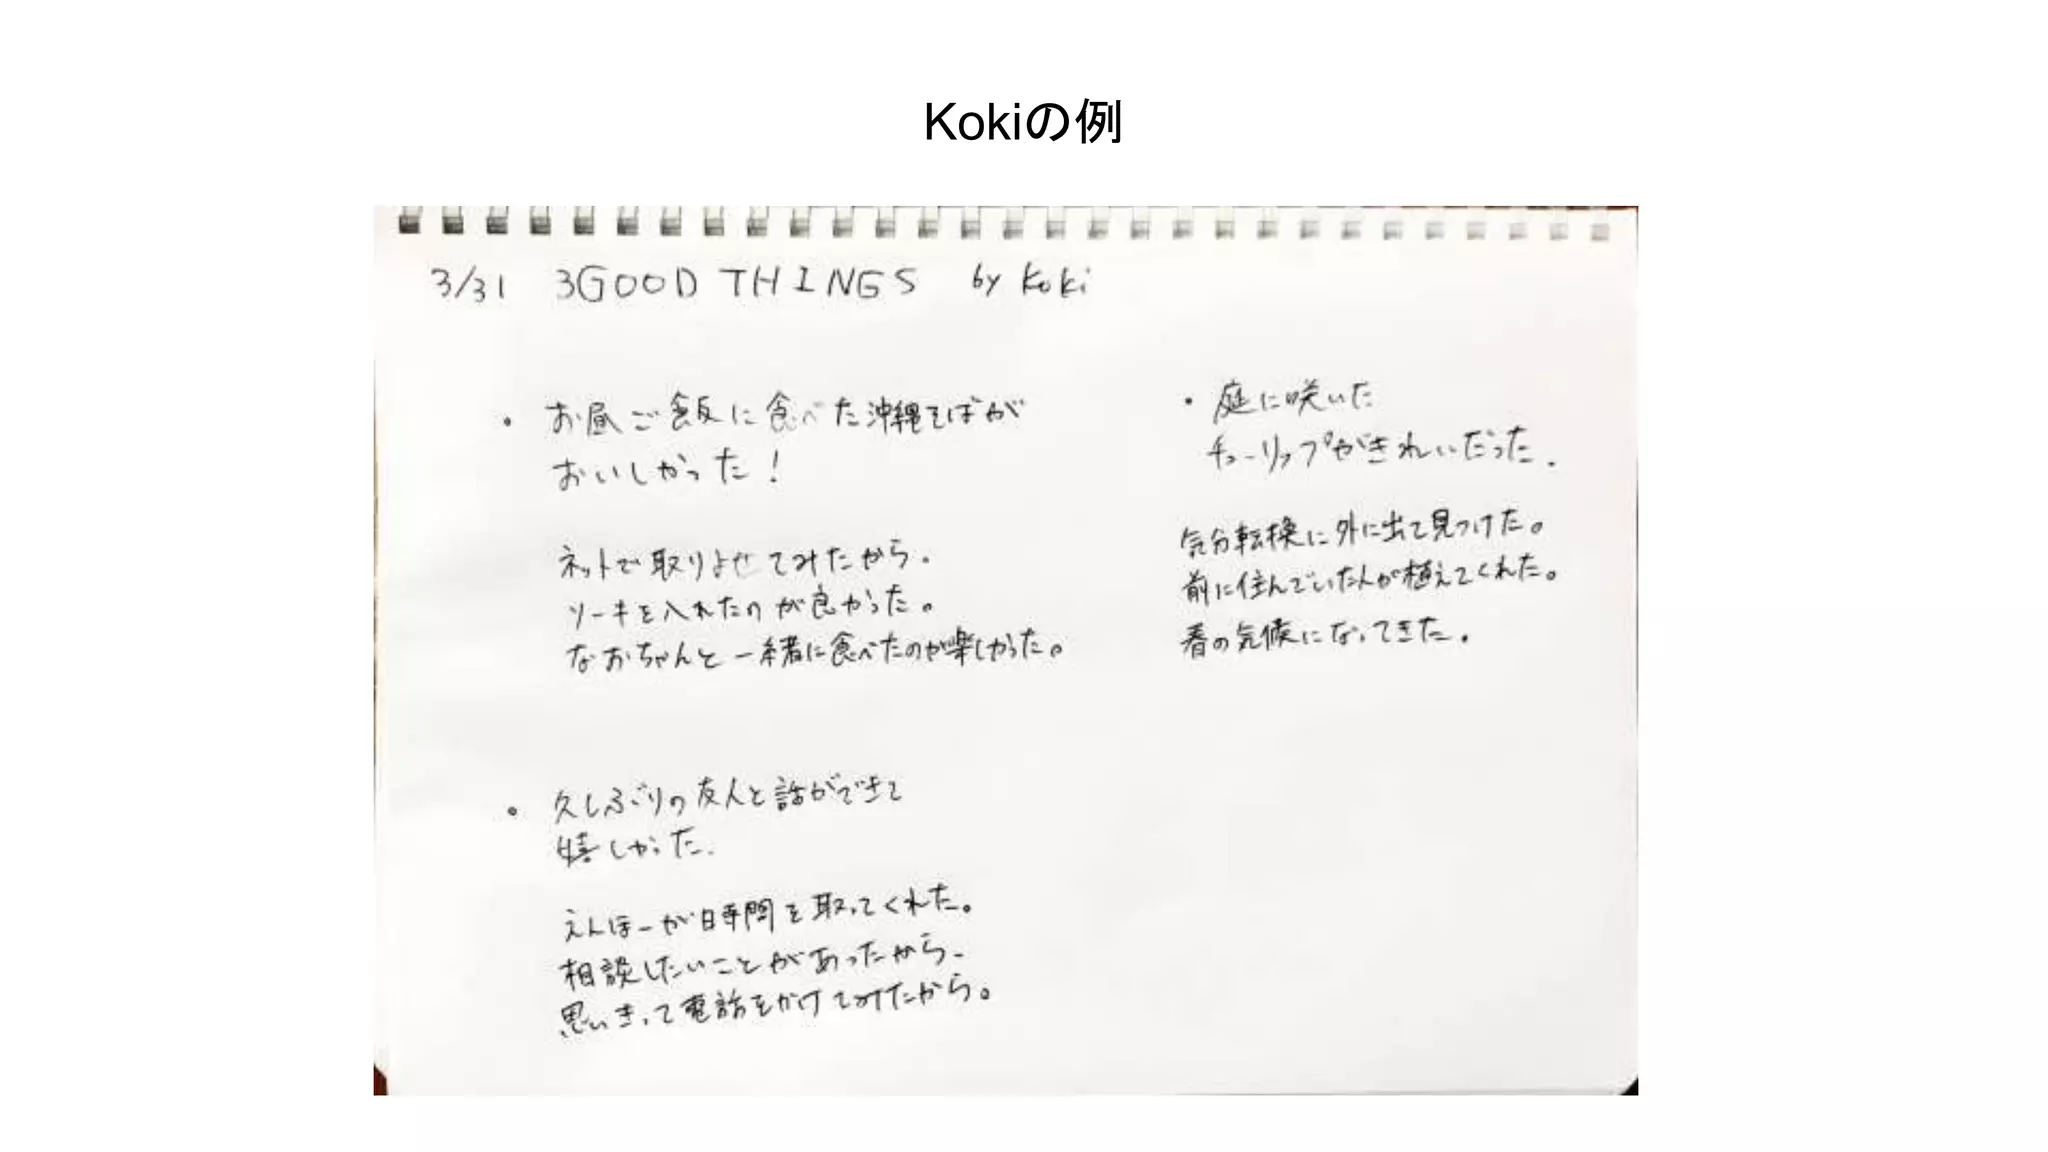 Kokiの例
3/31 3GOOD THINGS by Koki
・お昼ご飯に食べた沖縄そばが
おいしかった!
ネットで取りよせてみたから。
ソーキを入れたのが良かった。
なおちゃんと一緒に食べたのが楽しかった。
・久しぶりの友人と話ができて
嬉しかった.
えんほーが時間を取ってくれた。
相談したいことがあったから、
思いきって電話をかけてみたから。
・庭に咲いた
チューリップがきれいだった.
気分転換に外に出て見つけた。
前に住んでいた人が植えてくれた。
春の気候になってきた。